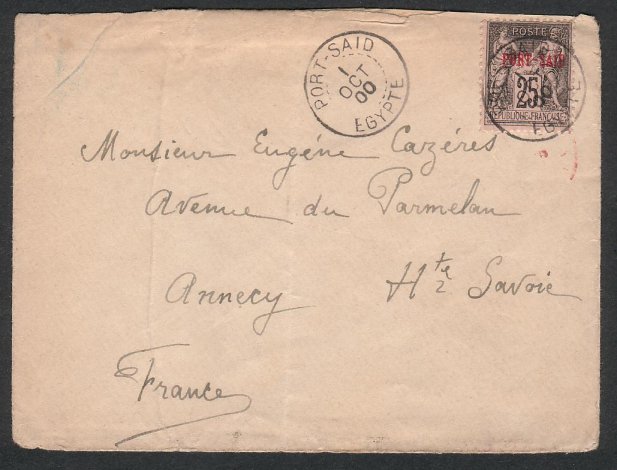 PORT-SAID
1
OCT
00
EGYPTE
POSTE
PORT-SAID
25
REPUBLIQUE FRANÇAISE
Monsieur Eugéne Cazéres
Avenue du Parmelan
Annecy Hte Savoie
France